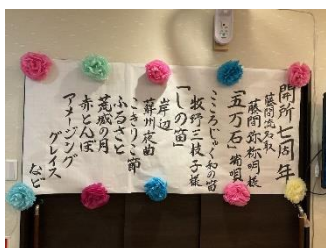 開所七周年
藤間流名取
藤間弥称明様
「五万石」端唄
こころじゅく和の笛
牧野三枝子様
「しの笛」
岸辺
蘇州夜曲
こきりこ節
ふるさと
荒城の月
赤とんぼ
アメージング
グレイス
など